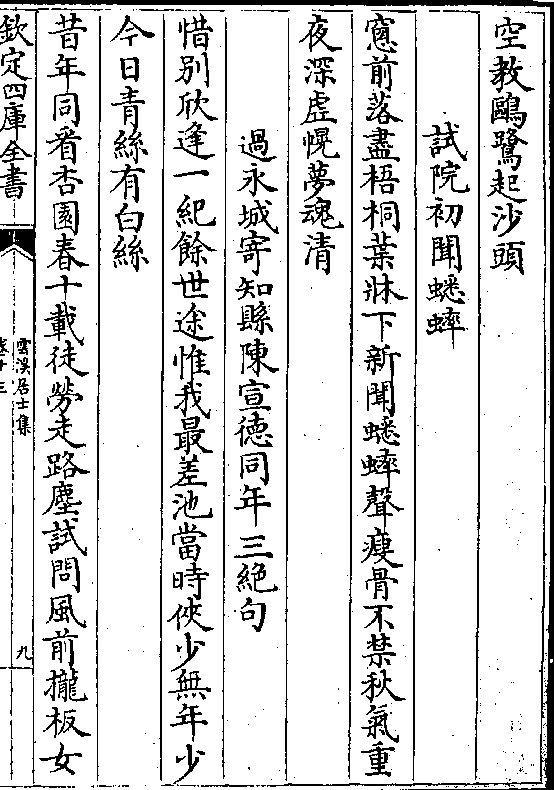 空教鷗鷺起沙頭
試院初聞蟋蟀
窻前落盡梧桐葉牀下新聞蟋蟀聲瘦骨不禁秋氣重
夜深虚幌夢魂清
過永城寄知縣陳宣德同年三絶句
惜别欣逢一紀餘世途惟我最差池當時俠少無年少
今日青絲有白絲
昔年同看杏園春十載徒勞走路塵試問風前攏板女
欽定四庫全書
雲溪居士集
卷十三
九